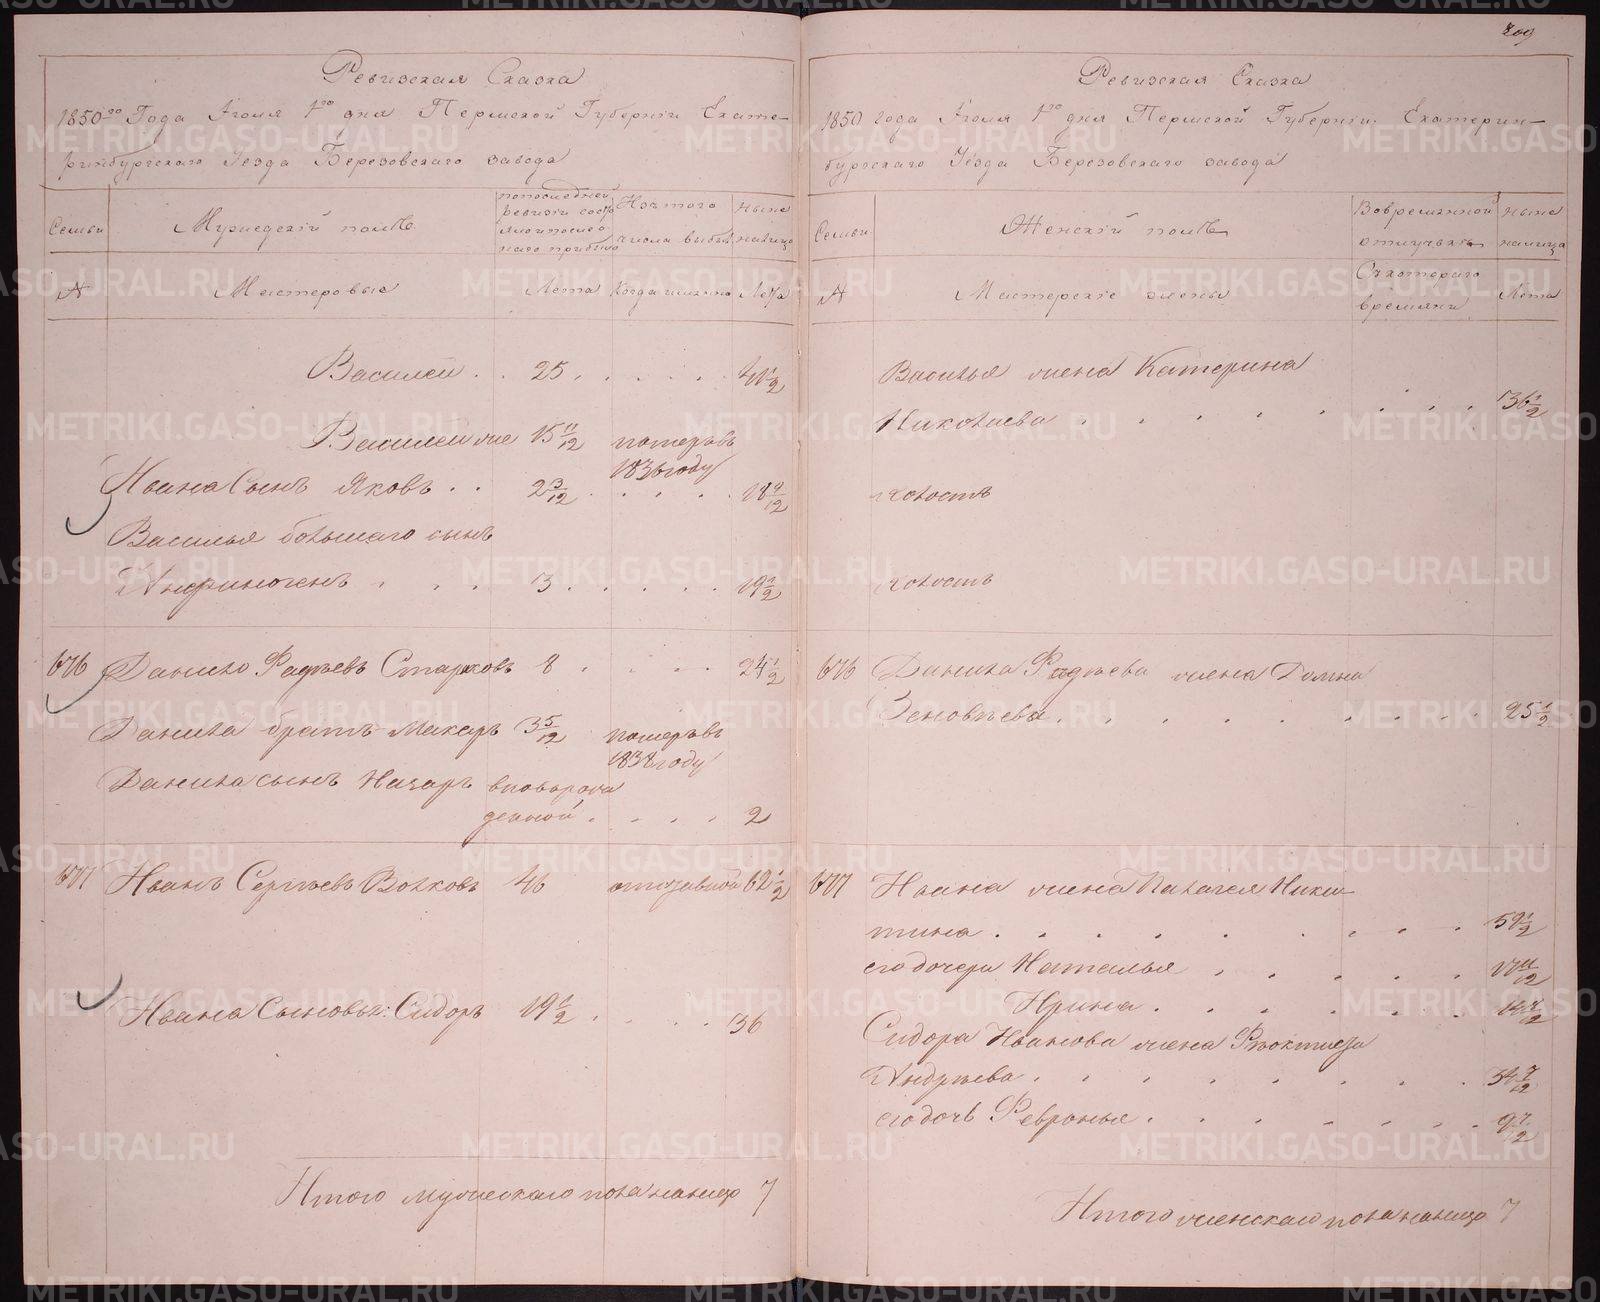 209
Ревизская Сказка
1850го Года Июля 1го дня Пермской Губернiи Екате-
ринбургскаго Уезда Березовскаго завода
Семьи
Мужедскiй полъ
попоследней
ревизiи состо
Изтого
числа выбыло
ныне
налицо
№
Мастеровые
Лета
Когда именно
Лета
Василей . . 25 . . . . . 41 1/2
Василей же 15 11/12 померъвъ
1836 году
Ивана Сынъ Яковъ . . 2 3/12 . . . . . 18 9/12
Василья большаго сынъ
Анфиногенъ . . . 3 . . . . . 19 1/2
676 Данило Фадѣевъ Старковъ 8 . . . . 24 1/2
Данила братъ Макаръ 3 5/12 померъвъ
1838 году
Данила сынъ Назаръ вновьрож
денной . . . . 2
677 Иванъ Сергѣевъ Волковъ 46 отставной 62 1/2
Ивана Сыновья: Сидоръ 19 1/2 . . . . 36
Итого мужескаго пола налицо 7
Ревизская Сказка
1850 года Июля 1го дня Пермской Губернiи Екатерин-
бургскаго Уезда Березовскаго завода
Семьи
Женскiй полъ
Вовременной
отлучкѣ
ныне
налицо
№
Мастерскiе жены
Съкотораго
времяни
Лета
Василья жена Катерина
Николаева . . . . . . . 36 1/2
холостъ
холостъ
676 Данила Фадѣева жена Домна
Зеновьева . . . . . . . . 25 1/2
677 Ивана жена Палагея Ники-
тина . . . . . . . . 59 1/2
его дочери Наталья . . . . . 17 11/12
Ирина . . . . . . 14 7/12
Сидора Иванова жена Фѣоктиста
Андрѣева . . . . . . . . 34 7/12
его дочь Февронья . . . . . . . 9 7/12
Итого женскаго пола налицо 7
METRIKI.GASO-URAL.RU